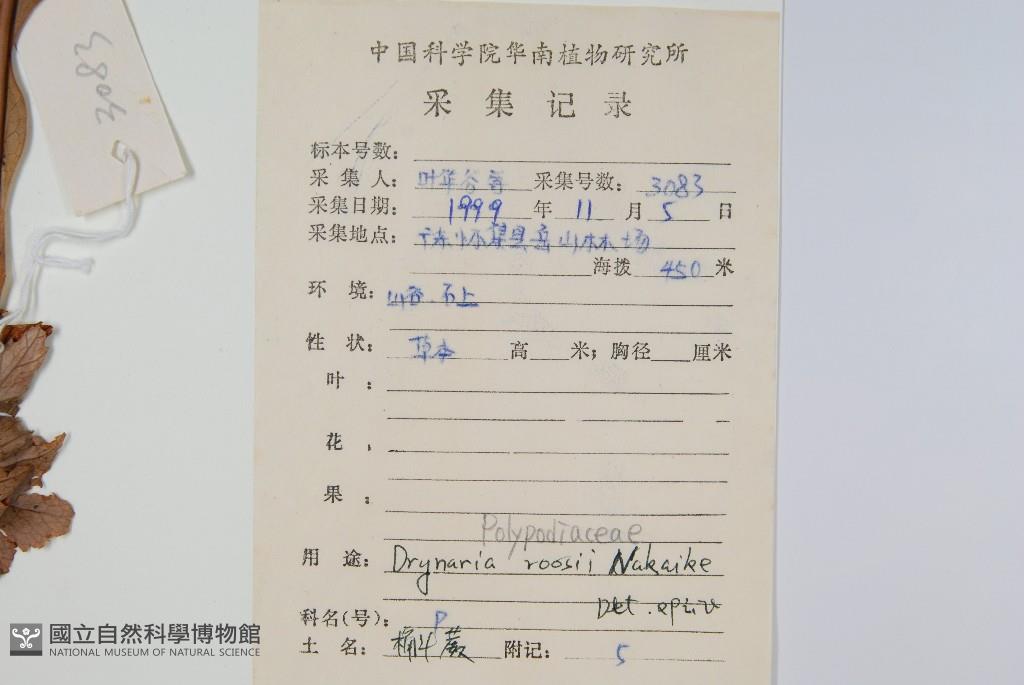 3083
中国科学院华南植物研究所
采集记录
标本号数：
采集人：叶华谷 采集号数：3083
采集日期：1999年11月5日
采集地点：怀集县岳山林场
海拨450米
环境：山谷.石上
性状：草本 高 米；胸径 厘米
叶：
花：
果：
Polypodiaceae
用途：Drynaria roosii Nakaike
Det.
科名(号)：P
土名：槲斗蕨 附记：5
國立自然科學博物館
NATIONAL MUSEUM OF NATURAL SCIENCE